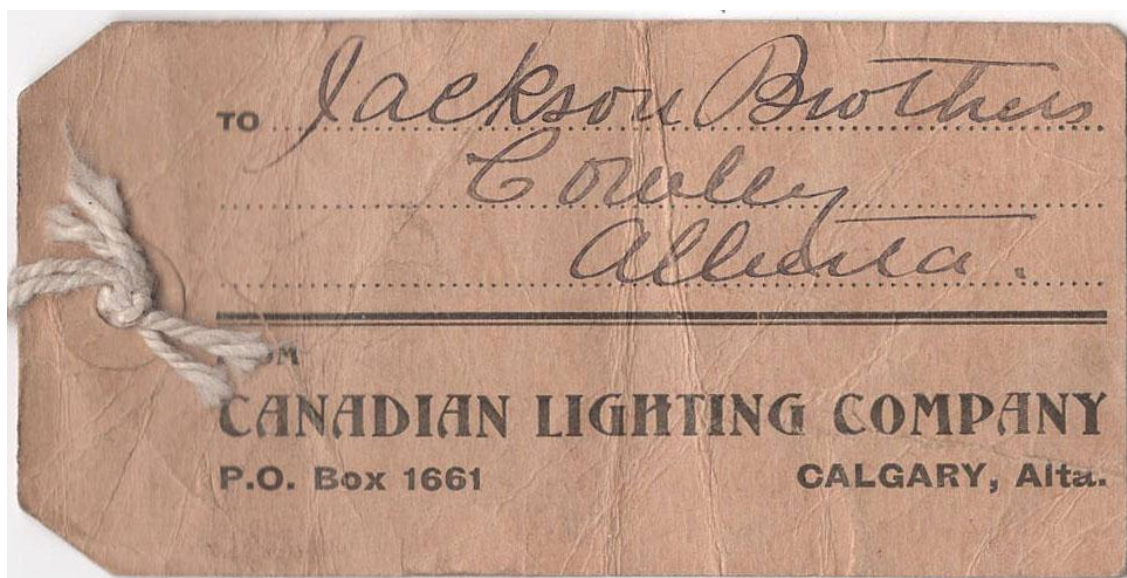 TO Jackson Brothers
Cowley
Alberta.
FROM
CANADIAN LIGHTING COMPANY
P.O. Box 1661 CALGARY, Alta.